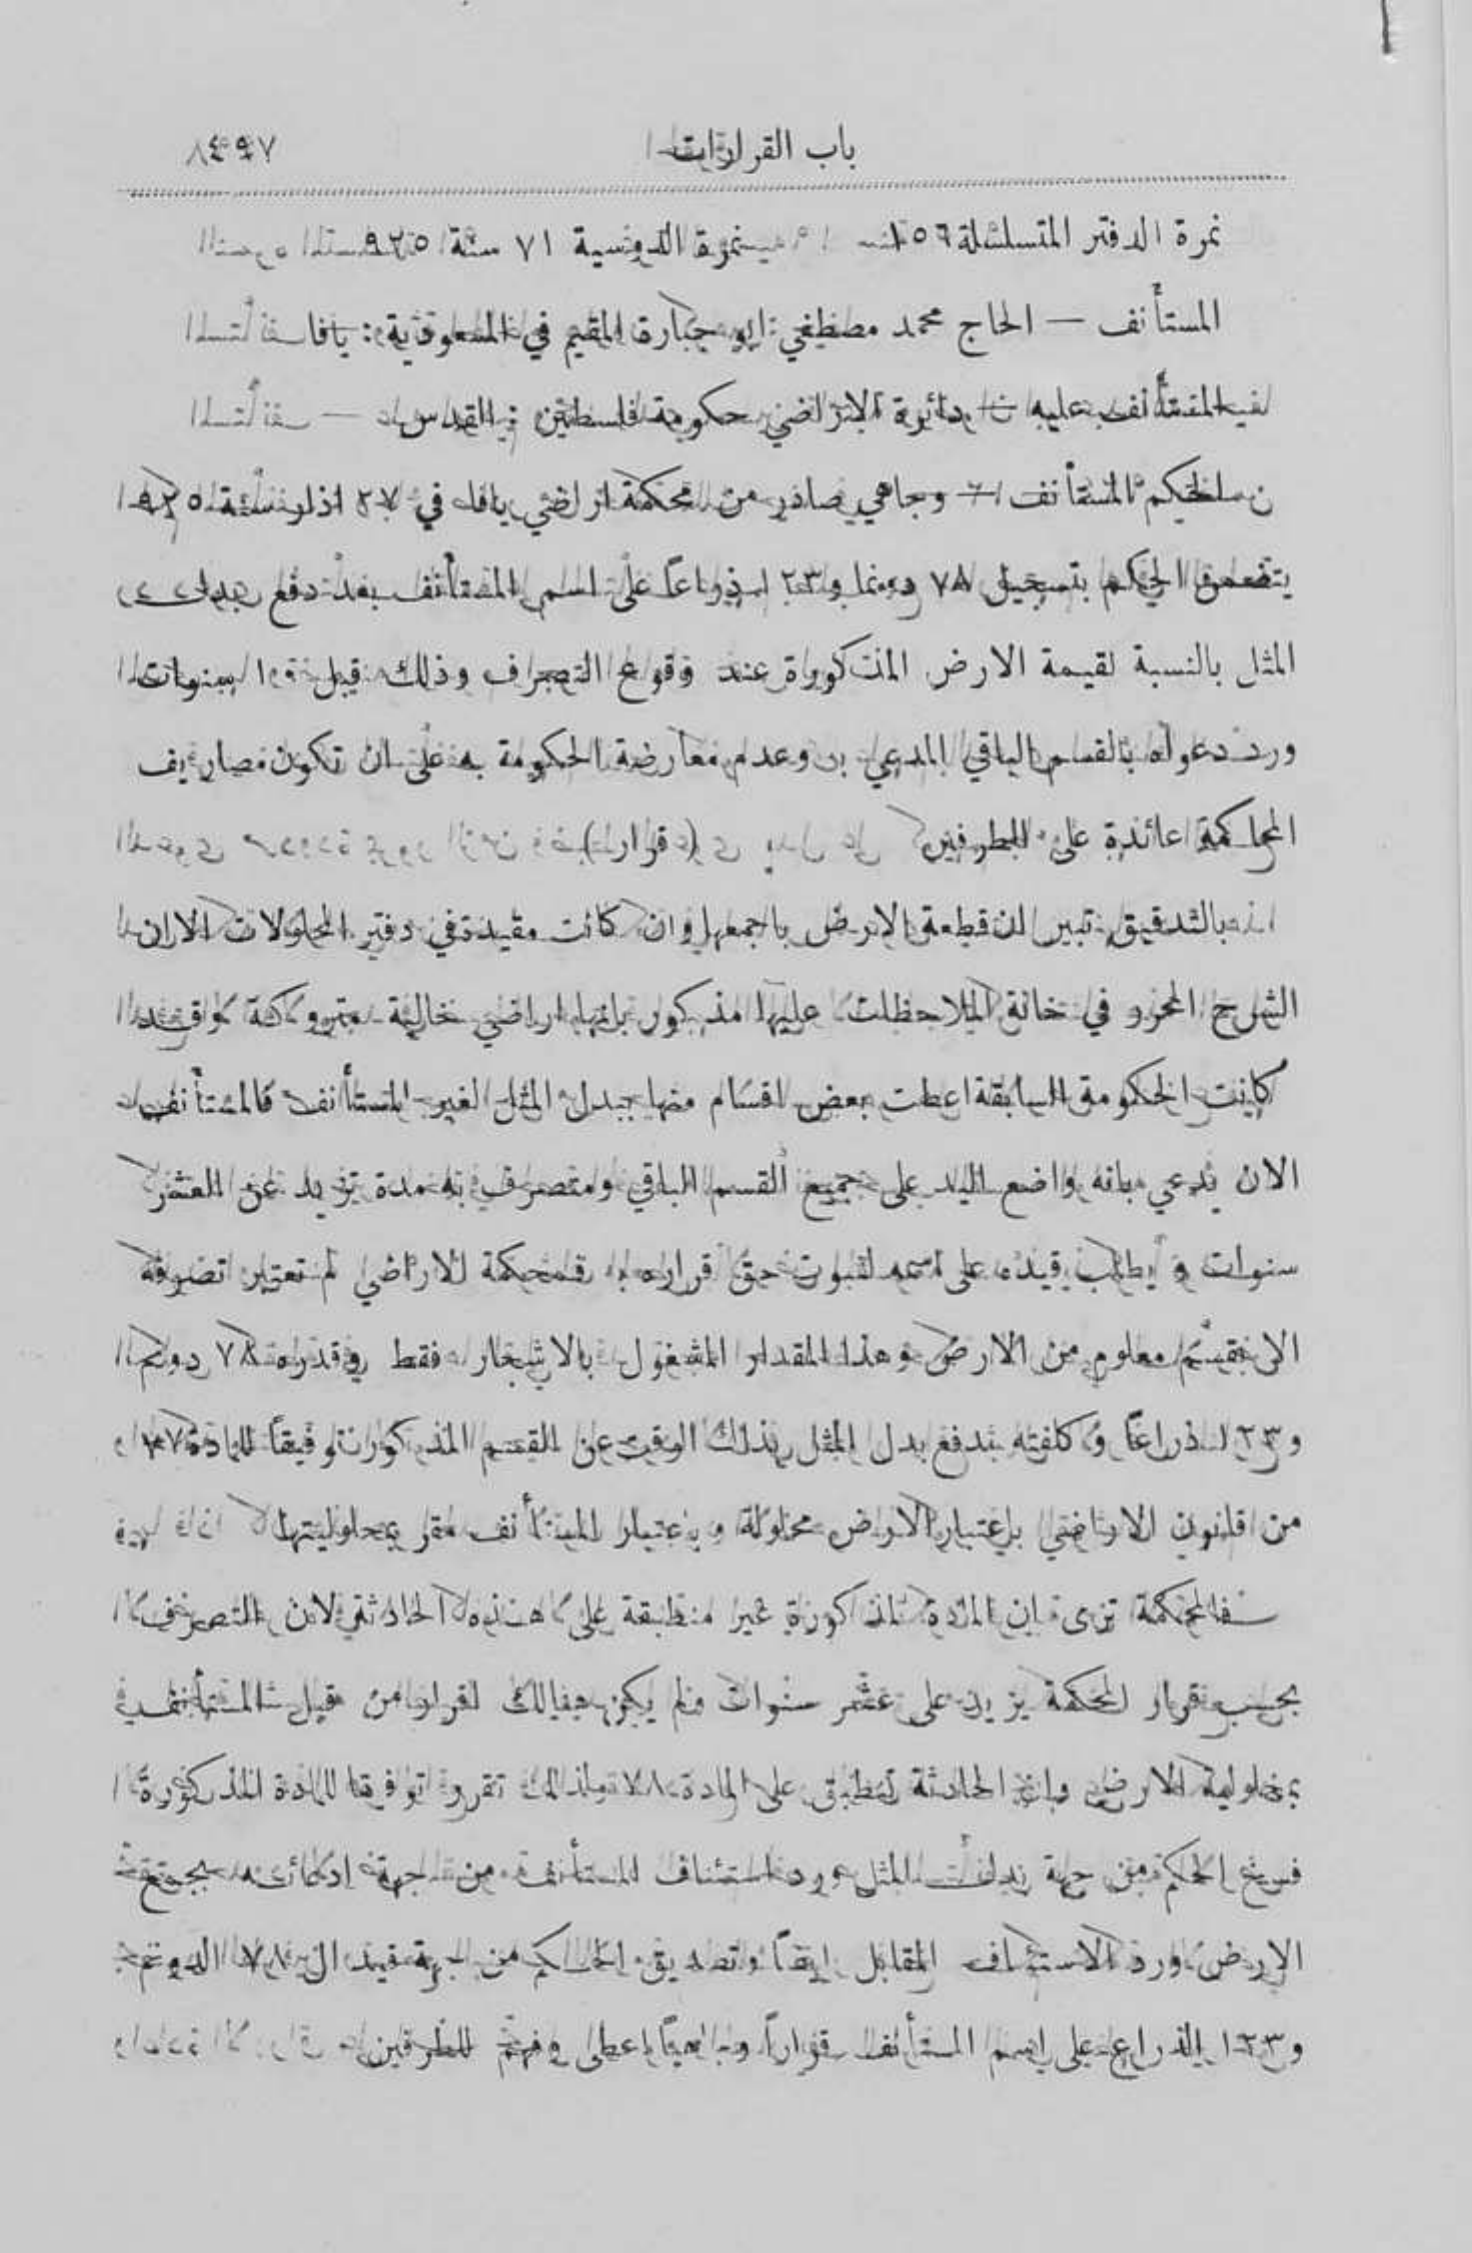 باب القرارات
نمرة الدفتر المتسلسلة ١٥٦ نمرة الدوسية ٧١ سنة ٩٢٥
المستأنف — الحاج محمد مصطفي ابو جبارة المقيم في يافا
المستأنف عليه — دائرة الاراضي حكومة فلسطين في القدس
الحكم المستأنف — وجاهي صادر من محكمة اراضي يافا في ٢٧ اذار سنة ٩٢٥
يتضمن الحكم بتسجيل ٧٨ دونما و١٢٣ ذراعاً على اسم المستأنف بعد دفع بدل
المثل بالنسبة لقيمة الارض المذكورة عند وقوع التصرف وذلك قبل ١٠ سنوات
ورد دعواه بالقسم الباقي المدعي به وعدم معارضة الحكومة به على ان تكون مصاريف
المحاكمة عائدة على الطرفين (قرار)
بالتدقيق تبين ان قطعة الارض باجمعها وان كانت مقيدة في دفتر المحلولات الا ان
الشرح المحرر في خانة الملاحظات عليها مذكور بانها اراضي خالية متروكة وقد
كانت الحكومة السابقة اعطت بعض اقسام منها ببدل المثل لغير المستأنف فالمستأنف
الان يدعي بانه واضع اليد على جميع القسم الباقي ومتصرف به مدة تزيد عن العشر
سنوات و يطلب قيده على اسمه لثبوت حق قراره فمحكمة الاراضي لم تعتبر تصرفه
الا بقسم معلوم من الارض وهذا المقدار المشغول بالاشجار فقط وقدره ٧٨ دونم
و١٢٣ ذراعاً وكلفته بدفع بدل المثل بذلك الوقت عن القسم المذكور توفيقاً للمادة
من قانون الاراضي باعتبار الارض محلولة و باعتبار المستأنف مقر بمحلوليتها
فالمحكمة ترى ان المادة المذكورة غير منطبقة على هذه الحادثة لان التصرف
بحسب قرار المحكمة يزيد على عشر سنوات ولم يكن هنالك اقرار من قبل المستأنف
بمحلولية الارض وان الحادثة تنطبق على المادة ٧٨ ولذلك تقرر توفيقا للمادة المذكورة
فسخ الحكم من جهة بدل المثل ورد استئناف المستأنف من جهة ادعائه بجميع
الارض ورد الاستئناف المقابل ايضاً وتصديق الحكم من جهة قيد ال ٧٨ الدونم
و١٢٣ الذراع على اسم المستأنف قراراً وجاهياً اعطى وفهم للطرفين